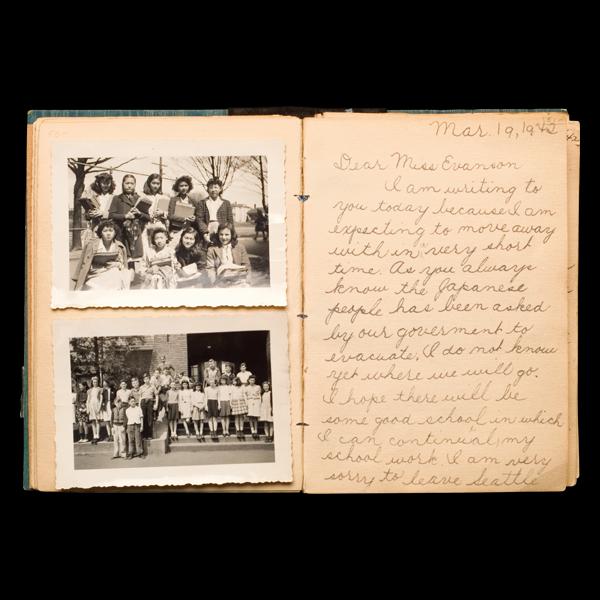 Mar. 19, 1942
Dear Miss Evanson
I am writing to
you today because I am
expecting to move away
with in very short
time. As you always
know the Japanese
people has been asked
by our goverment to
evacuate. I do not know
yet where we will go.
I hope there will be
some good school in which
I can continual my
school work. I am very
sorry to leave Seattle